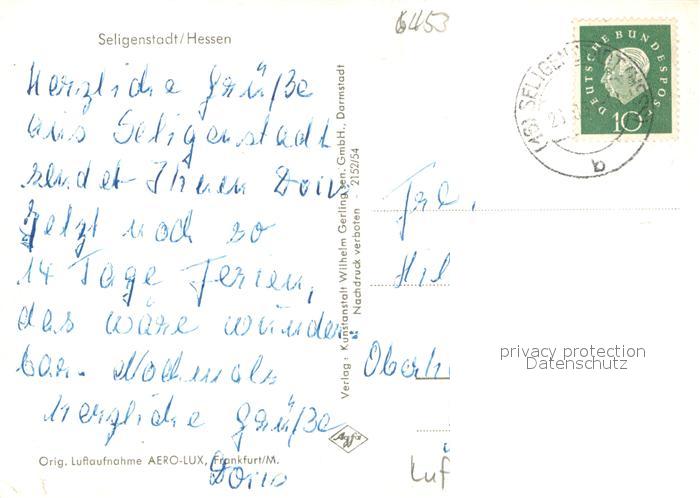 6453
Seligenstadt/Hessen
Herzliche Grüße
aus Seligenstadt
sendet Ihnen Doris
Jetzt noch so
14 Tage Ferien,
das wäre wunder-
bar. Nochmals
herzliche Grüße
Doris
Orig. Luftaufnahme AERO-LUX, Frankfurt/M.
Verlag: Kunstanstalt Wilhelm Gerlingsen. GmbH., Darmstadt
Nachdruck verboten - 2152/54
Agfa
DEUTSCHE BUNDESPOST
10
(16) SELIGENSTADT
b
Frl.
Hil
Oberh
Luf
privacy protection
Datenschutz